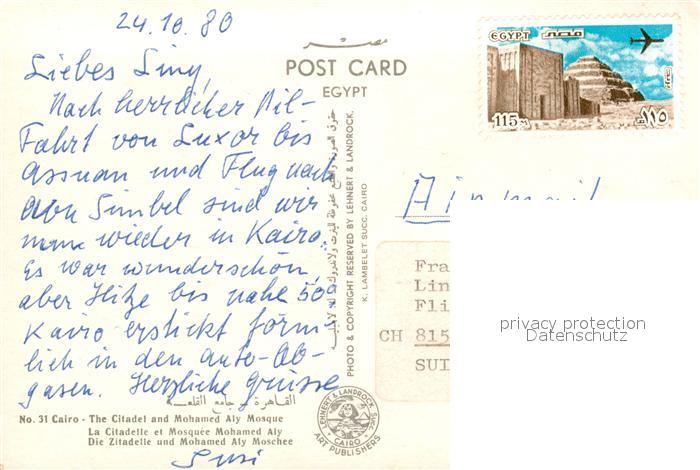 24.10.80
Liebes Liny,
Nach herrlicher Nil-
Fahrt von Luxor bis
Assuan und Flug nach
Abu Simbel sind wir
nun wieder in Kairo.
Es war wunderschön,
aber Hitze bis nahe 50°
Kairo erstickt förm-
lich in den Auto-Ab-
gasen. Herzliche Grüsse
Susi
مصر
POST CARD
EGYPT
EGYPT مصر
115 م ١١٥
PHOTO & COPYRIGHT RESERVED BY LEHNERT & LANDROCK.
K. LAMBELET SUCC. CAIRO
Airmail
Fra
Lin
Fli
CH 815
SUI
privacy protection
Datenschutz
القاهرة - جامع القلعة
No. 31 Cairo - The Citadel and Mohamed Aly Mosque
La Citadelle et Mosquée Mohamed Aly
Die Zitadelle und Mohamed Aly Moschee
LEHNERT & LANDROCK SUCC.
CAIRO
ART PUBLISHERS